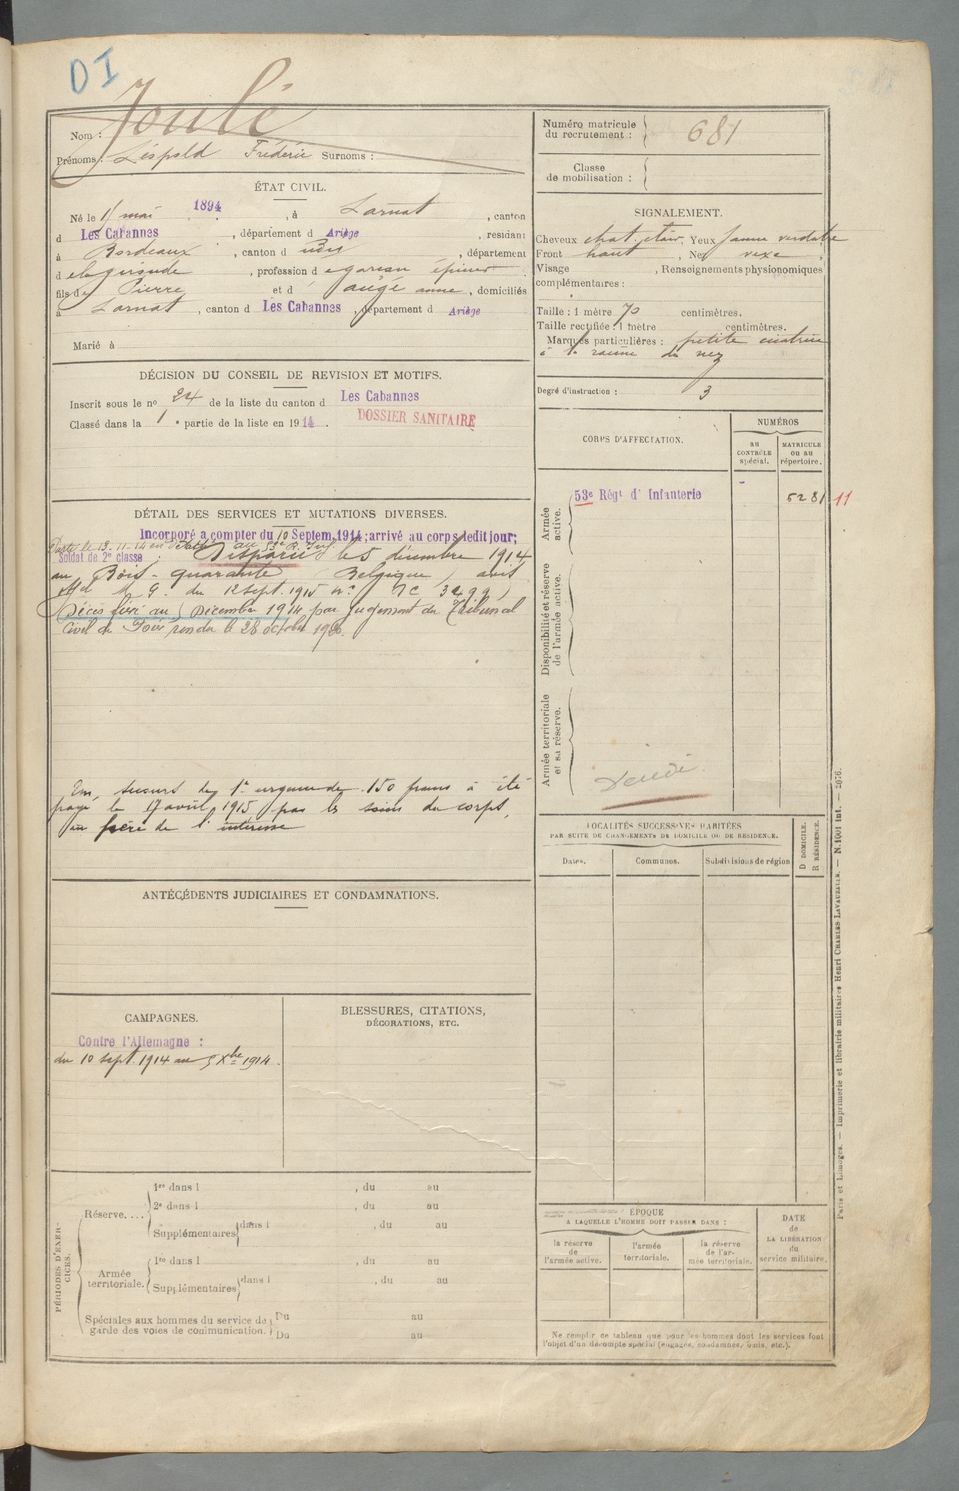 DI
Nom : Joulé
Prénoms : Léopold Frédéric Surnoms :
ÉTAT CIVIL.
Né le 11 mai 1894, à Larnat, canton
d Les Cabannes, département d Ariège, résidant
à Bordeaux, canton d udit, département
d e la gironde, profession d e garçon épicier
fils de Pierre et d augé anne, domiciliés
à Larnat, canton d Les Cabannes, département d Ariège
Marié à
DÉCISION DU CONSEIL DE REVISION ET MOTIFS.
Inscrit sous le nº 24 de la liste du canton d Les Cabannes
Classé dans la 1e partie de la liste en 1914.
DOSSIER SANITAIRE
DÉTAIL DES SERVICES ET MUTATIONS DIVERSES.
Incorporé a compter du 10 Septem. 1914; arrivé au corps ledit jour;
Soldat de 2e classe. Disparu le 5 décembre 1914
au Bois-quarante Belgique, avis
du 12 sept. 1915 nº
Décès fixé au 5 Décembre 1914 par jugement du Tribunal
Civil de Foix rendu le 28 octobre 1920.
Un, secours de 1re urgence de 150 francs à été
payé le 17 avril 1915 par les soins du corps,
au frère de l'intéressé
ANTÉCÉDENTS JUDICIAIRES ET CONDAMNATIONS.
CAMPAGNES.
Contre l'Allemagne :
du 10 sept. 1914 au 5 Xbre 1914.
BLESSURES, CITATIONS,
DÉCORATIONS, ETC.
PÉRIODES D'EXER-
CICES.
Réserve....
1re dans l , du au
2e dans l , du au
Supplémentaires dans l , du au
Armée
territoriale.
1re dans l , du au
Supplémentaires dans l , du au
Spéciales aux hommes du service de Du au
garde des voies de communication. Du au
Numéro matricule
du recrutement : 681
Classe
de mobilisation :
SIGNALEMENT.
Cheveux chat. clair, Yeux jaune verdatre
Front haut, Nez vexe,
Visage , Renseignements physionomiques
complémentaires :
Taille : 1 mètre 70 centimètres.
Taille rectifiée : 1 mètre centimètres.
Marques particulières : petite cicatrice
à la racine du nez
Degré d'instruction : 3
CORPS D'AFFECTATION.
NUMÉROS
au
CONTRÔLE
spécial.
MATRICULE
ou au
répertoire.
Armée
active.
53e Régt d' Infanterie
5281 11
Disponibilité et réserve
de l'armée active.
Armée territoriale
et sa réserve.
LOCALITÉS SUCCESSIVES HABITÉES
PAR SUITE DE CHANGEMENTS DE DOMICILE OU DE RÉSIDENCE.
Dates.
Communes.
Subdivisions de région
D DOMICILE.
R RÉSIDENCE.
ÉPOQUE
A LAQUELLE L'HOMME DOIT PASSER DANS :
la réserve
de
l'armée active.
l'armée
territoriale.
la réserve
de l'ar-
mée territoriale.
DATE
de
LA LIBÉRATION
du
service militaire.
Ne remplir ce tableau que pour les hommes dont les services font
l'objet d'un décompte spécial (engagés, condamnés, omis, etc.).
Paris et Limoges. — Imprimerie et librairie militaires Henri CHARLES-LAVAUZELLE. — N. 1001 Int. — 2076.